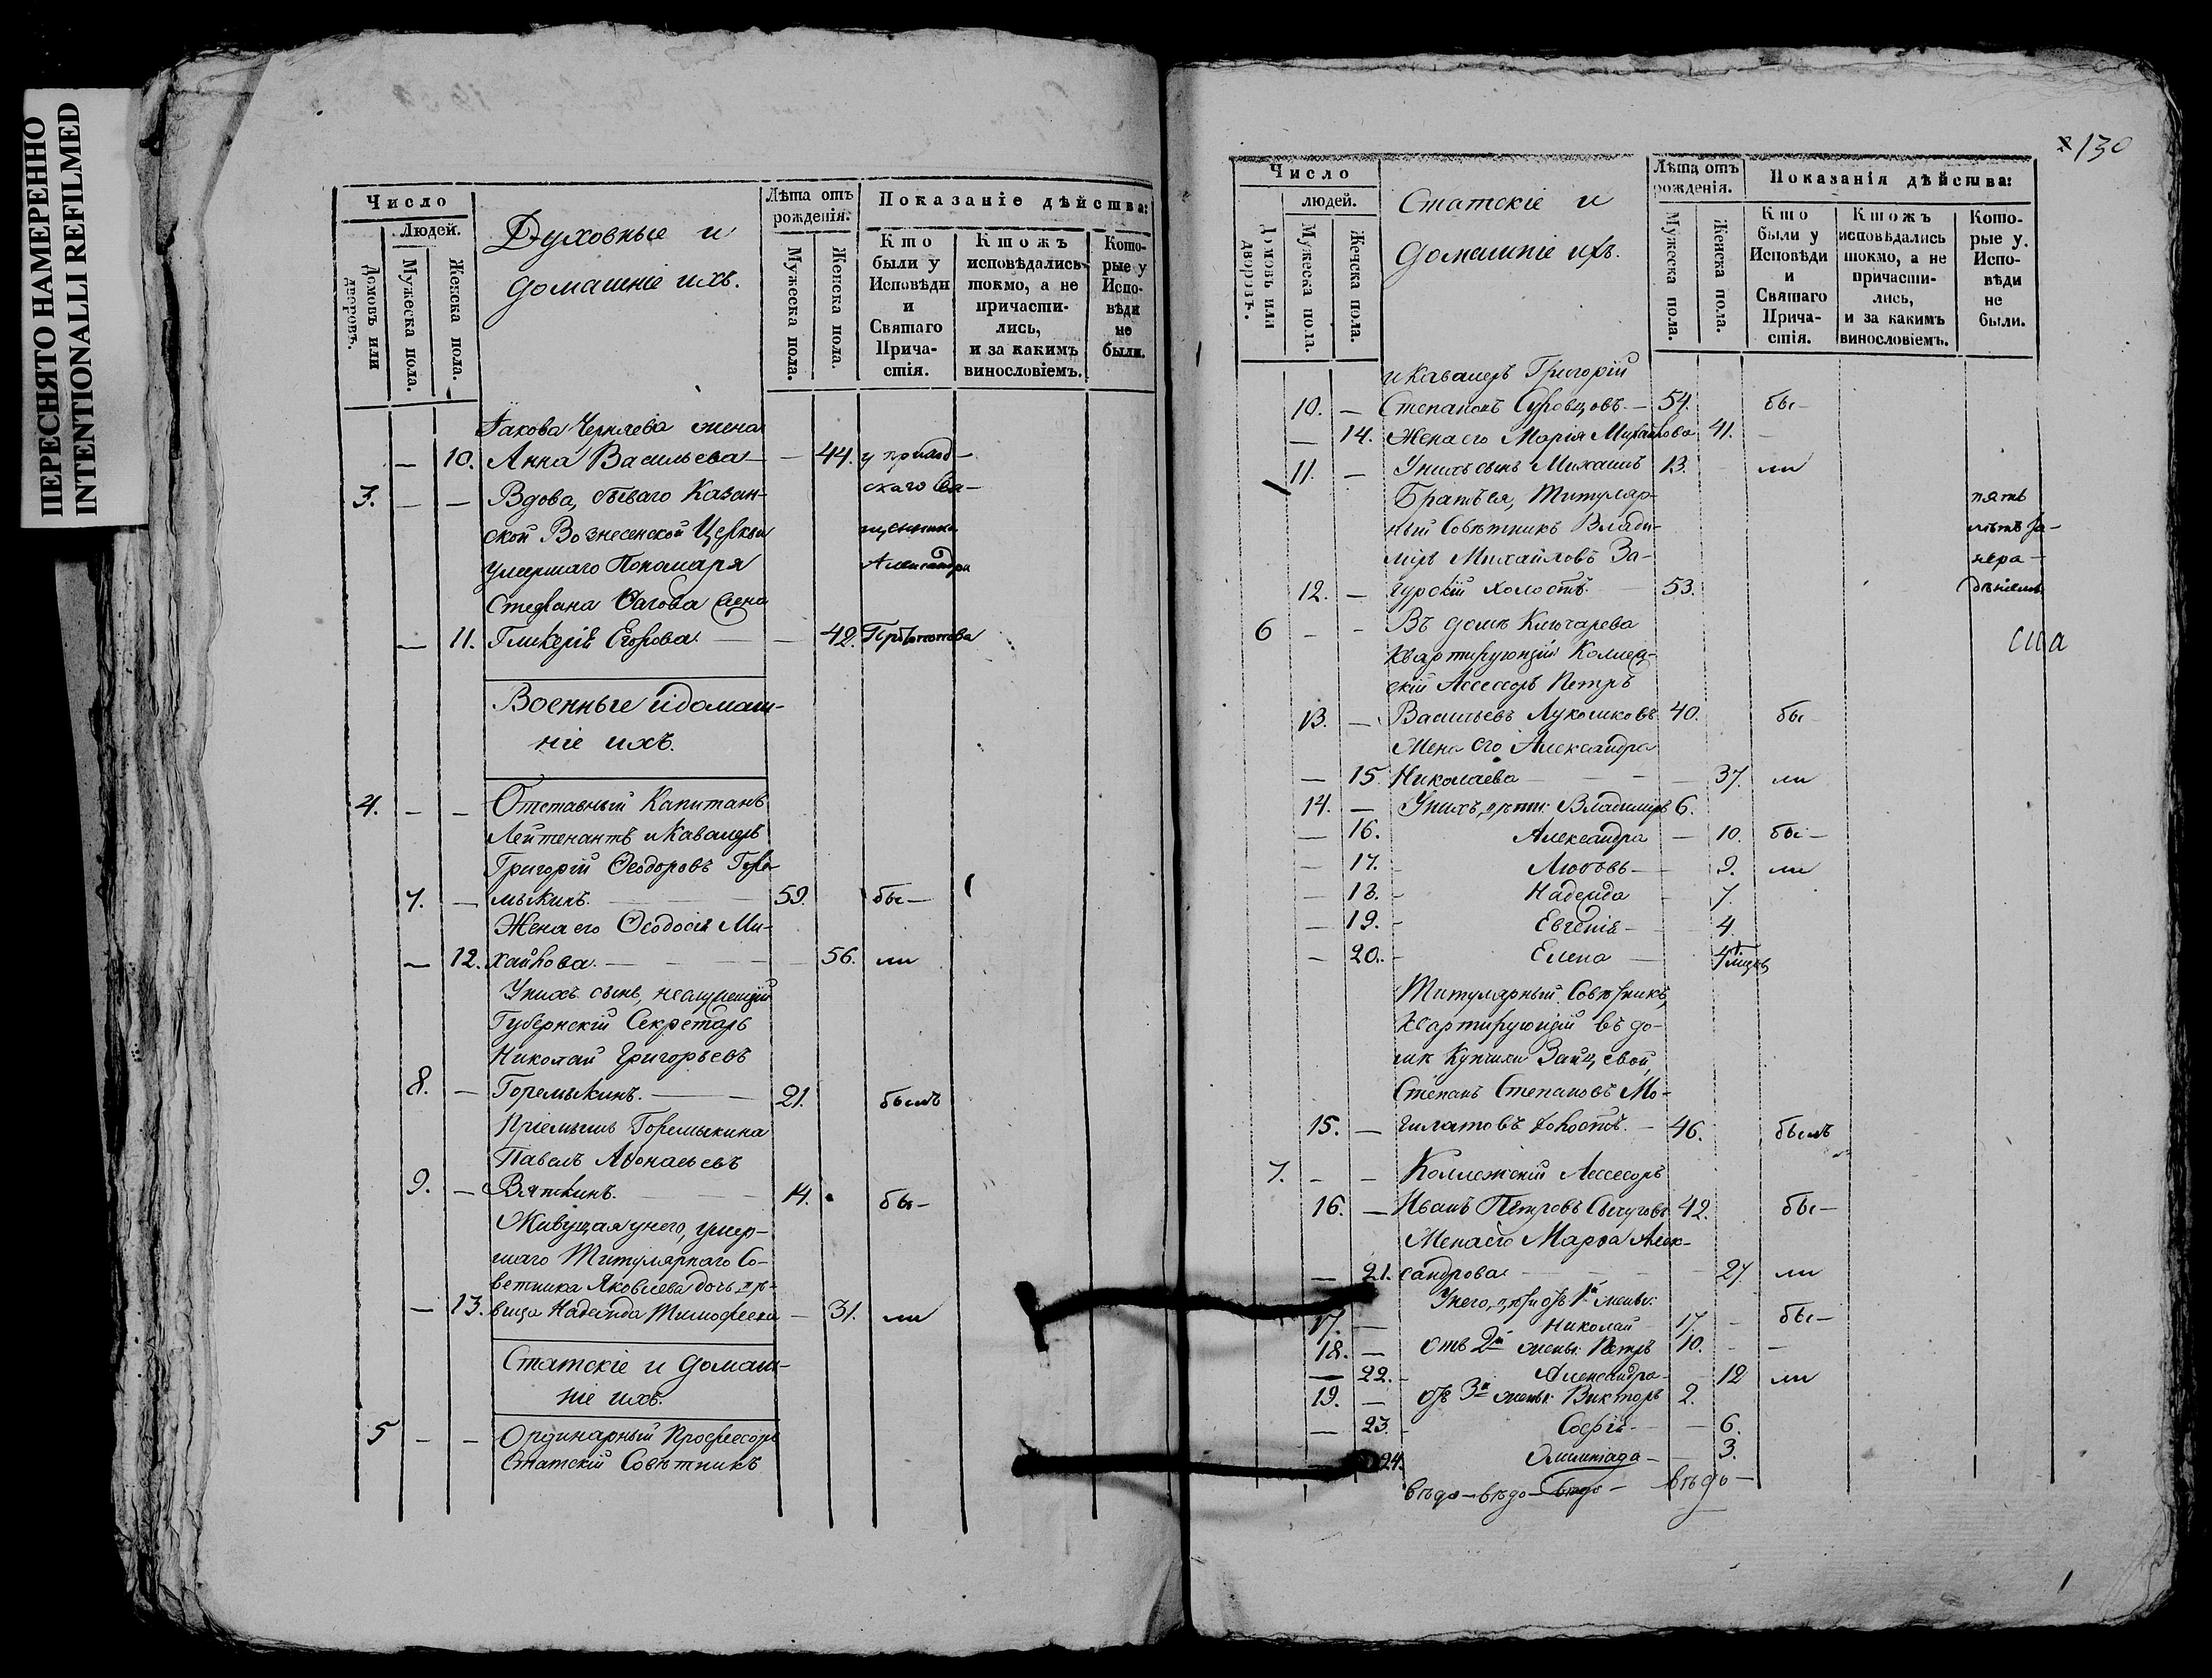 ПЕРЕСНЯТО НАМЕРЕННО
INTENTIONALLI REFILMED
Число
Людей.
Домовъ или дворовъ.
Мужеска пола.
Женска пола.
Духовные и
домашніе ихъ.
Лѣта отъ рожденія.
Мужеска пола.
Женска пола.
Показаніе дѣйства:
Кто были у Исповѣди и Святаго Причастія.
Ктожъ исповѣдались токмо, а не причастились, и за какимъ винословіемъ.
Которые у Исповѣди не были.
Іакова Черняева жена
— 10. Анна Васильева — — 44. у приход-
3. — — Вдова, бывшаго Казан- скаго Свя-
ской Вознесенской Церкви щенника
умершаго Пономаря Александра
Стефана жена
— 11. Гликерія Егорова. — — 42.
Военные и домаш-
ніе ихъ.
4. — — Отставный Капитанъ
Лейтенантъ и Кавалеръ
Григорій Ѳеодоровъ Горе-
7. — мыкинъ. — 59. бы —
Жена его Ѳеодосія Ми-
— 12. хайлова. — — 56. ли
У нихъ сынъ, неслужащій
Губернскій Секретарь
Николай Григорьевъ
8. — Горемыкинъ. — 21. былъ
Пріемышъ Горемыкина
Павелъ Аѳонасьевъ
9. — Вяткинъ. — 14. бы —
Живущая у него, умер-
шаго Титулярнаго Со-
ветника Яковлева дочь, дѣ-
— 13. вица Надежда Тимофеева — 31. ли
Статскіе и домаш-
ніе ихъ.
5 — — Ординарный Профессоръ
Статскій Совѣтникъ
130
Число
людей.
Домовъ или дворовъ.
Мужеска пола.
Женска пола.
Статскіе и
домашніе ихъ.
Лѣта отъ рожденія.
Мужеска пола.
Женска пола.
Показанія дѣйства:
Кто были у Исповѣди и Святаго Причастія.
Ктожъ исповѣдались токмо, а не причастились, и за какимъ винословіемъ.
Которые у Исповѣди не были.
и Кавалеръ Григорій
10. — Степановъ Суровцовъ. — 54. бы —
— 14. Жена его Марія Михайлова 41. —
11. — У нихъ сынъ Михаилъ 13. ли
Братъ ея, Титуляр- пять
ный Совѣтникъ Влади- лѣтъ за
міръ Михайловъ За- нера-
12. — гурскій холостъ. — 53. дѣніемъ
6 — — Въ домѣ Ключарева
Квартирующій Коллеж-
скій Ассессоръ Петръ
13. — Васильевъ Лукошковъ 40. бы —
Жена его Александра
— 15. Николаева — — 37. ли
14. — У нихъ дѣти: Владиміръ 6.
— 16. Александра — 10. бы —
— 17. Любовь — 9. ли
— 18. Надежда — 7.
— 19. Евгенія — 4.
— 20. Елена —
Титулярный Совѣтникъ,
Квартирующій въ до-
мѣ Купчихи Зайцевой,
Степанъ Степановъ Мо-
15. — гилатовъ холостъ. — 46. былъ
7. — — Коллежскій Ассесоръ
16. — Иванъ Петровъ 42. бы —
Жена его Марѳа Алек-
— 21. сандрова — 27 ли
У него, дѣти отъ 1й жены:
17. — Николай 17. — бы —
18. — Отъ 2й жены: Петръ 10. — —
— 22. — Александра — 12 ли
19. — Отъ 3й жены: Викторъ 2.
— 23. — Софія — — 6.
24. Олимпіада — 3.